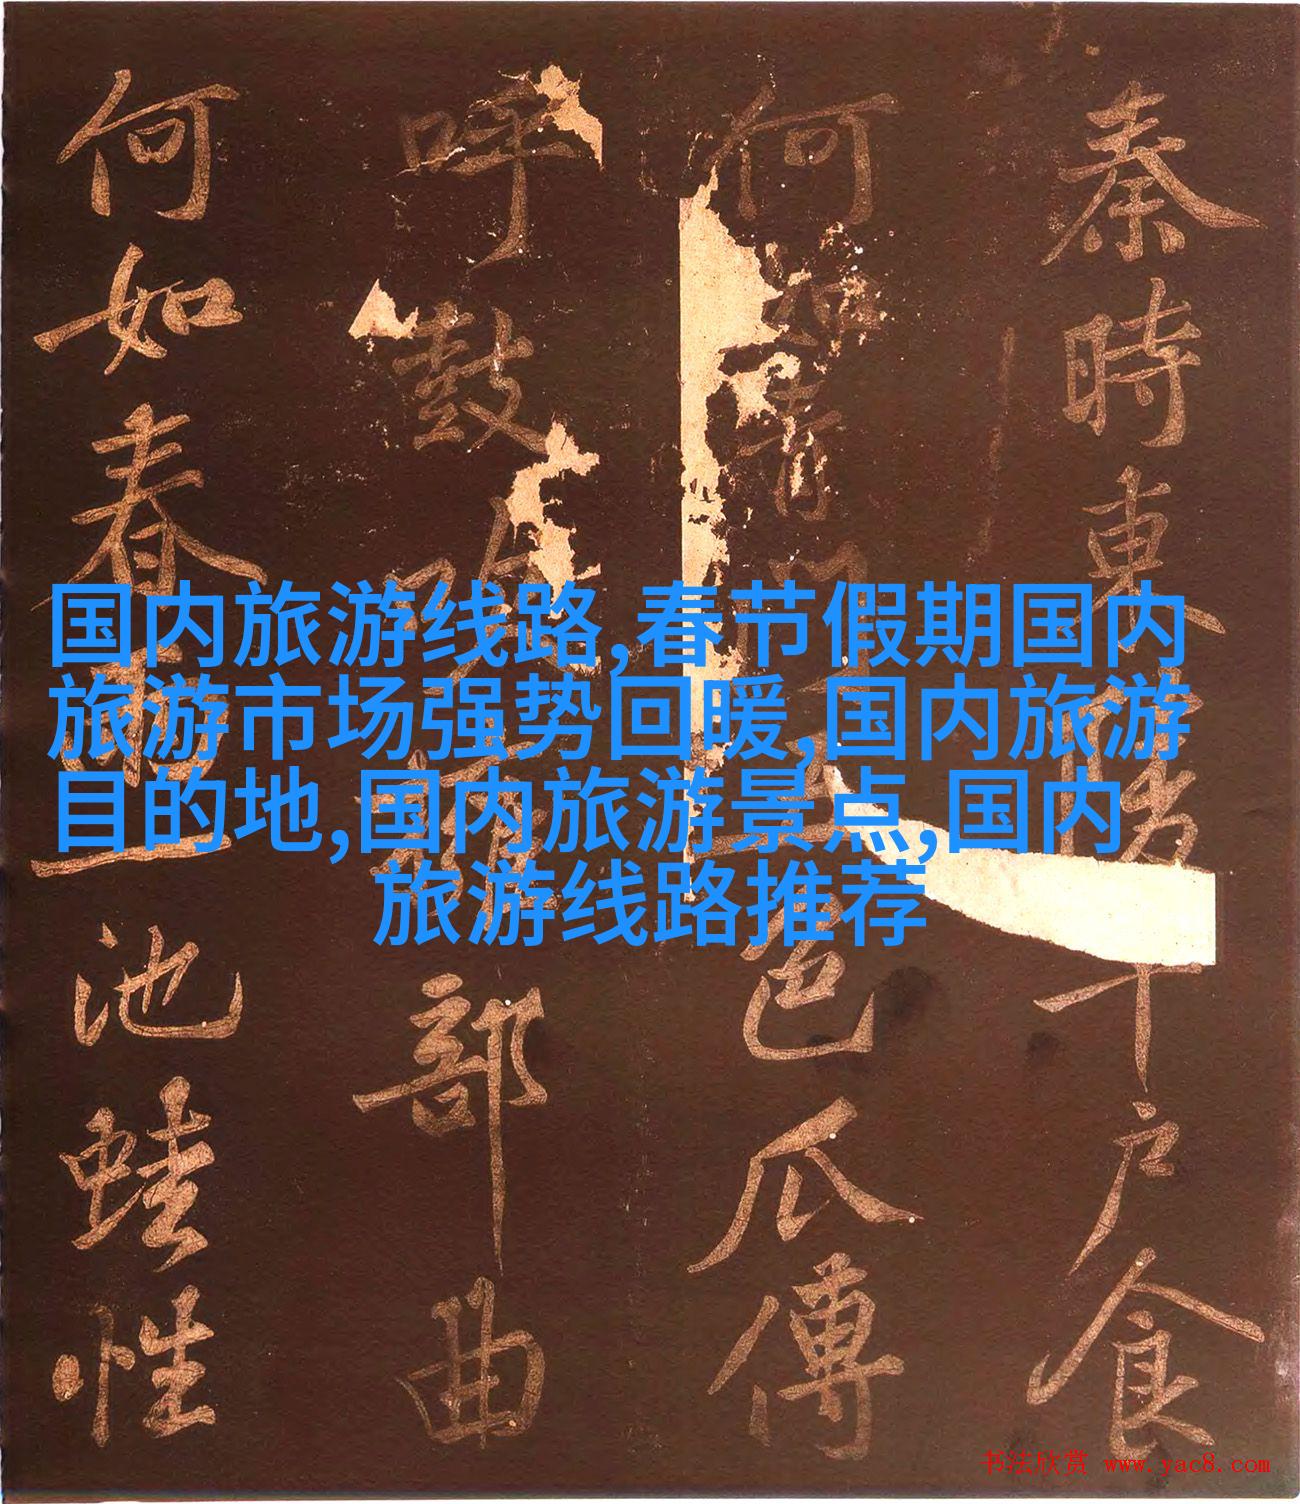 国内旅游线路,春节假期国内
旅游市场强势回暖,国内旅游
目的地,国内旅游景点,国内
旅游线路推荐
秦時東千戶食
何如青門色瓜傅
呼鼓吹部曲
何如春池蛙性
书法欣赏 www.yac8.com